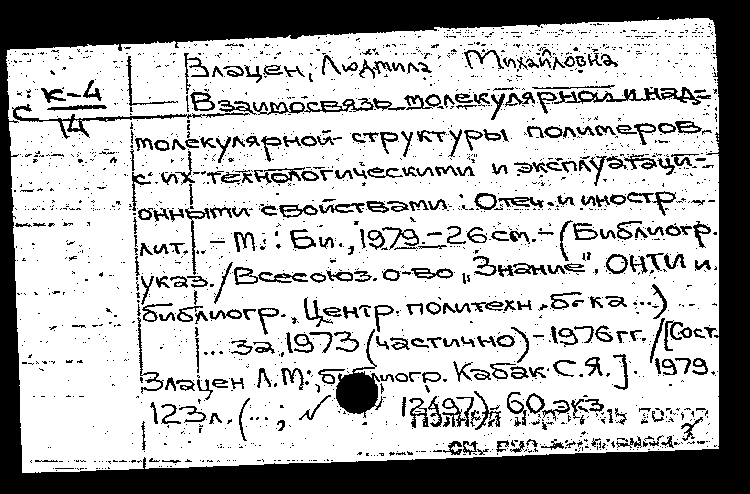 Злацен, Людмила Михайловна
с К-4
14
Взаимосвязь молекулярной и над-
молекулярной структуры полимеров
с их технологическими и эксплуатаци-
онными свойствами: Отеч. и иностр.
лит... - М.: Би., 1979. - 26 см. - (Библиогр.
указ. / Всесоюз. о-во „Знание". ОНТИ и
библиогр., Центр. политехн. б-ка ...)
... за 1973 (частично) - 1976 гг. / [Сост.
Злацен Л.М.; библиогр. Кабак С.Я.]. 1979.
123 л. (...; № 12497) 60 экз.
Полный
см.